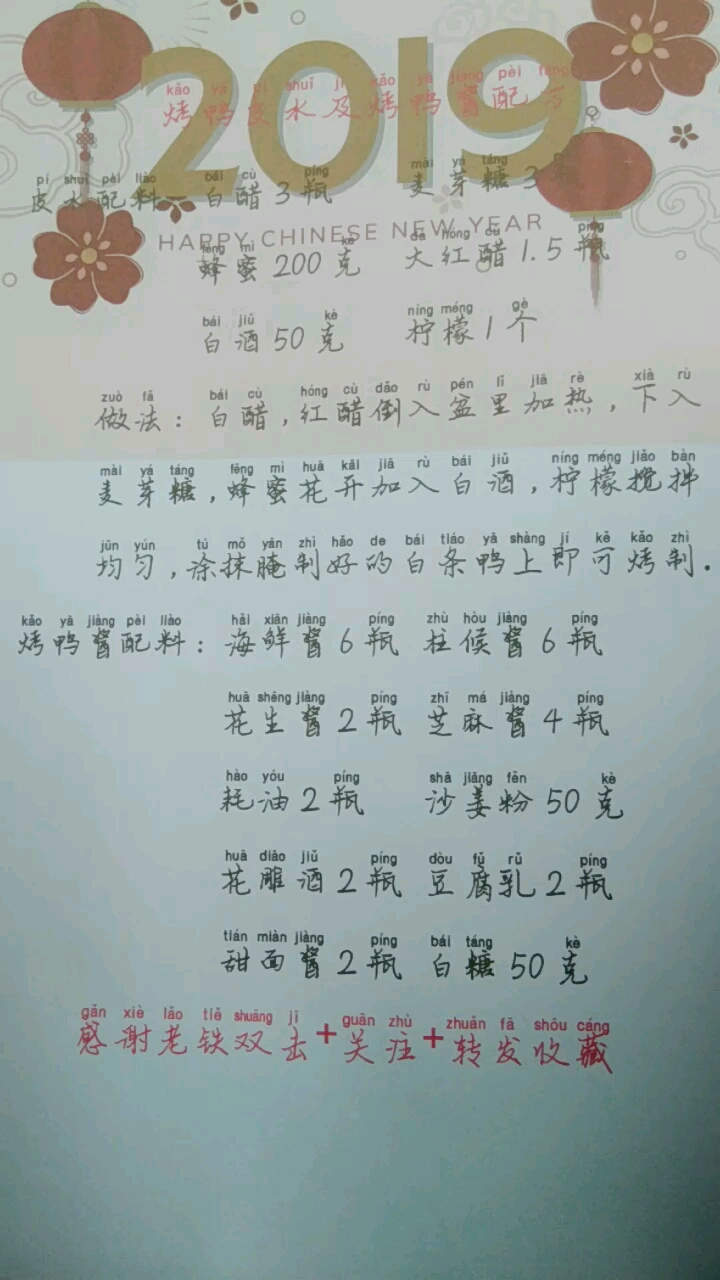 2019
kǎo yā pí shuǐ jí kǎo yā jiàng pèi fāng
烤鸭皮水及烤鸭酱配方
pí shuǐ pèi liào bái cù píng mài yá táng
皮水配料 白醋3瓶 麦芽糖3
HAPPY CHINESE NEW YEAR
fēng mì kè dà hóng cù píng
蜂蜜200克 大红醋1.5瓶
bái jiǔ kè níng méng gè
白酒50克 柠檬1个
zuò fǎ bái cù hóng cù dào rù pén lǐ jiā rè xià rù
做法：白醋,红醋倒入盆里加热,下入
mài yá táng fēng mì huā kāi jiā rù bái jiǔ níng méng jiǎo bàn
麦芽糖,蜂蜜花开加入白酒,柠檬搅拌
jūn yún tú mǒ yān zhì hǎo de bái tiáo yā shàng jí kě kǎo zhì
均匀,涂抹腌制好的白条鸭上即可烤制.
kǎo yā jiàng pèi liào hǎi xiān jiàng píng zhù hòu jiàng píng
烤鸭酱配料：海鲜酱6瓶 柱候酱6瓶
huā shēng jiàng píng zhī má jiàng píng
花生酱2瓶 芝麻酱4瓶
hào yóu píng shā jiāng fěn kè
耗油2瓶 沙姜粉50克
huā diāo jiǔ píng dòu fǔ rǔ píng
花雕酒2瓶 豆腐乳2瓶
tián miàn jiàng píng bái táng kè
甜面酱2瓶 白糖50克
gǎn xiè lǎo tiě shuāng jī guān zhù zhuǎn fā shōu cáng
感谢老铁双击+关注+转发收藏